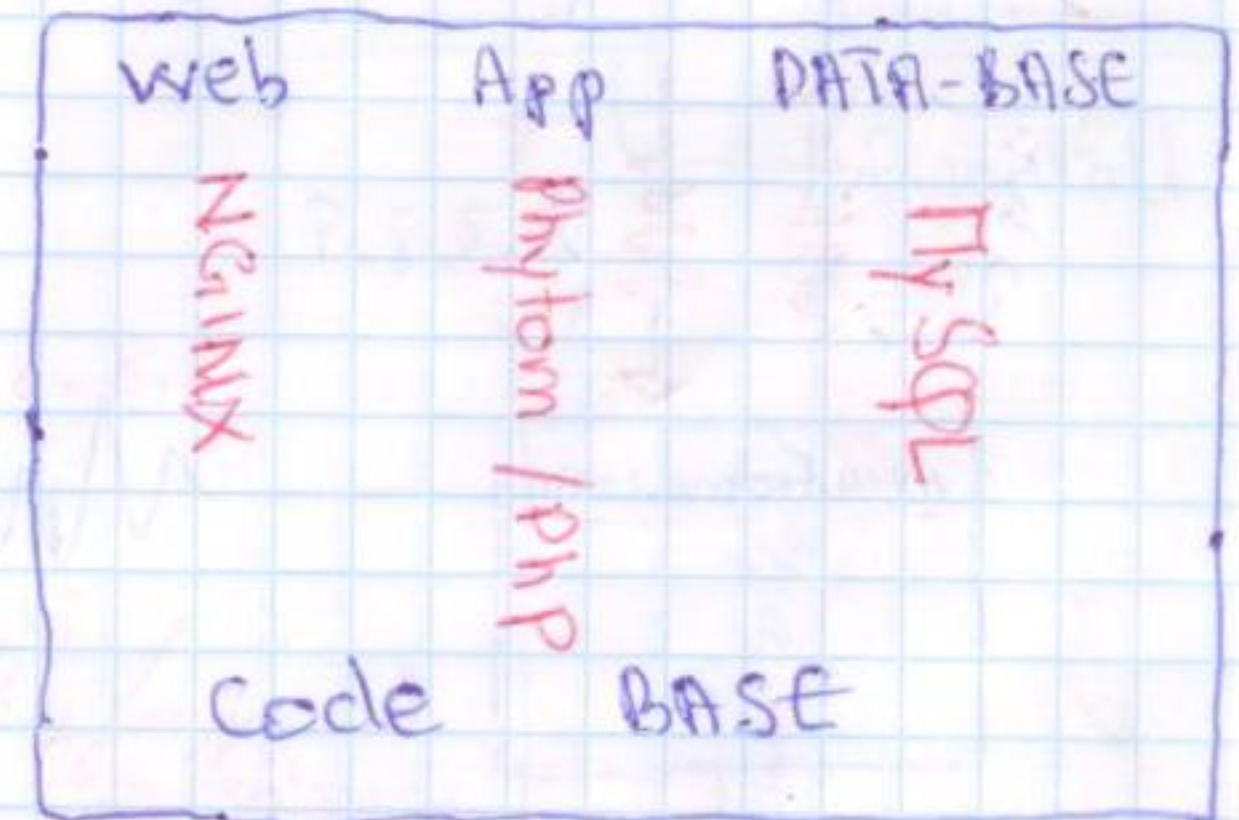 web App DATA-BASE
NGiNX
Phytom / PhP
MySQL
Code BASE